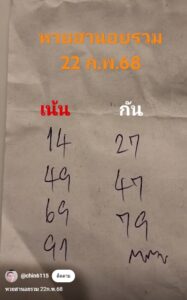 หวยฮานอยรวม
22 ก.พ.68
เน้น กัน
14 27
49 47
69 79
91
@chin6115 ติดตาม
หวยฮานอยรวม 22ก.พ.68